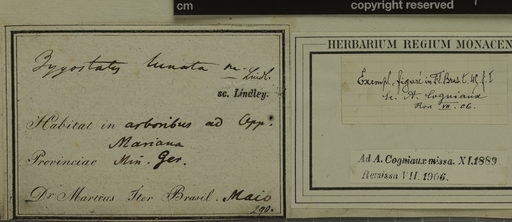 cm
copyright reserved
Zygostates lunata Lindl.
sc. Lindley.
Habitat in arboribus ad Opp.
Mariana
Provinciae Min. Ger.
Dr Martius Iter Brasil. Maio
HERBARIUM REGIUM MONACEN
Exempl. figur. in Fl. Bras.
sc. A. Cogniaux
VII. 06.
Ad A. Cogniaux missa. XI.1889.
Remissa VII. 1906.